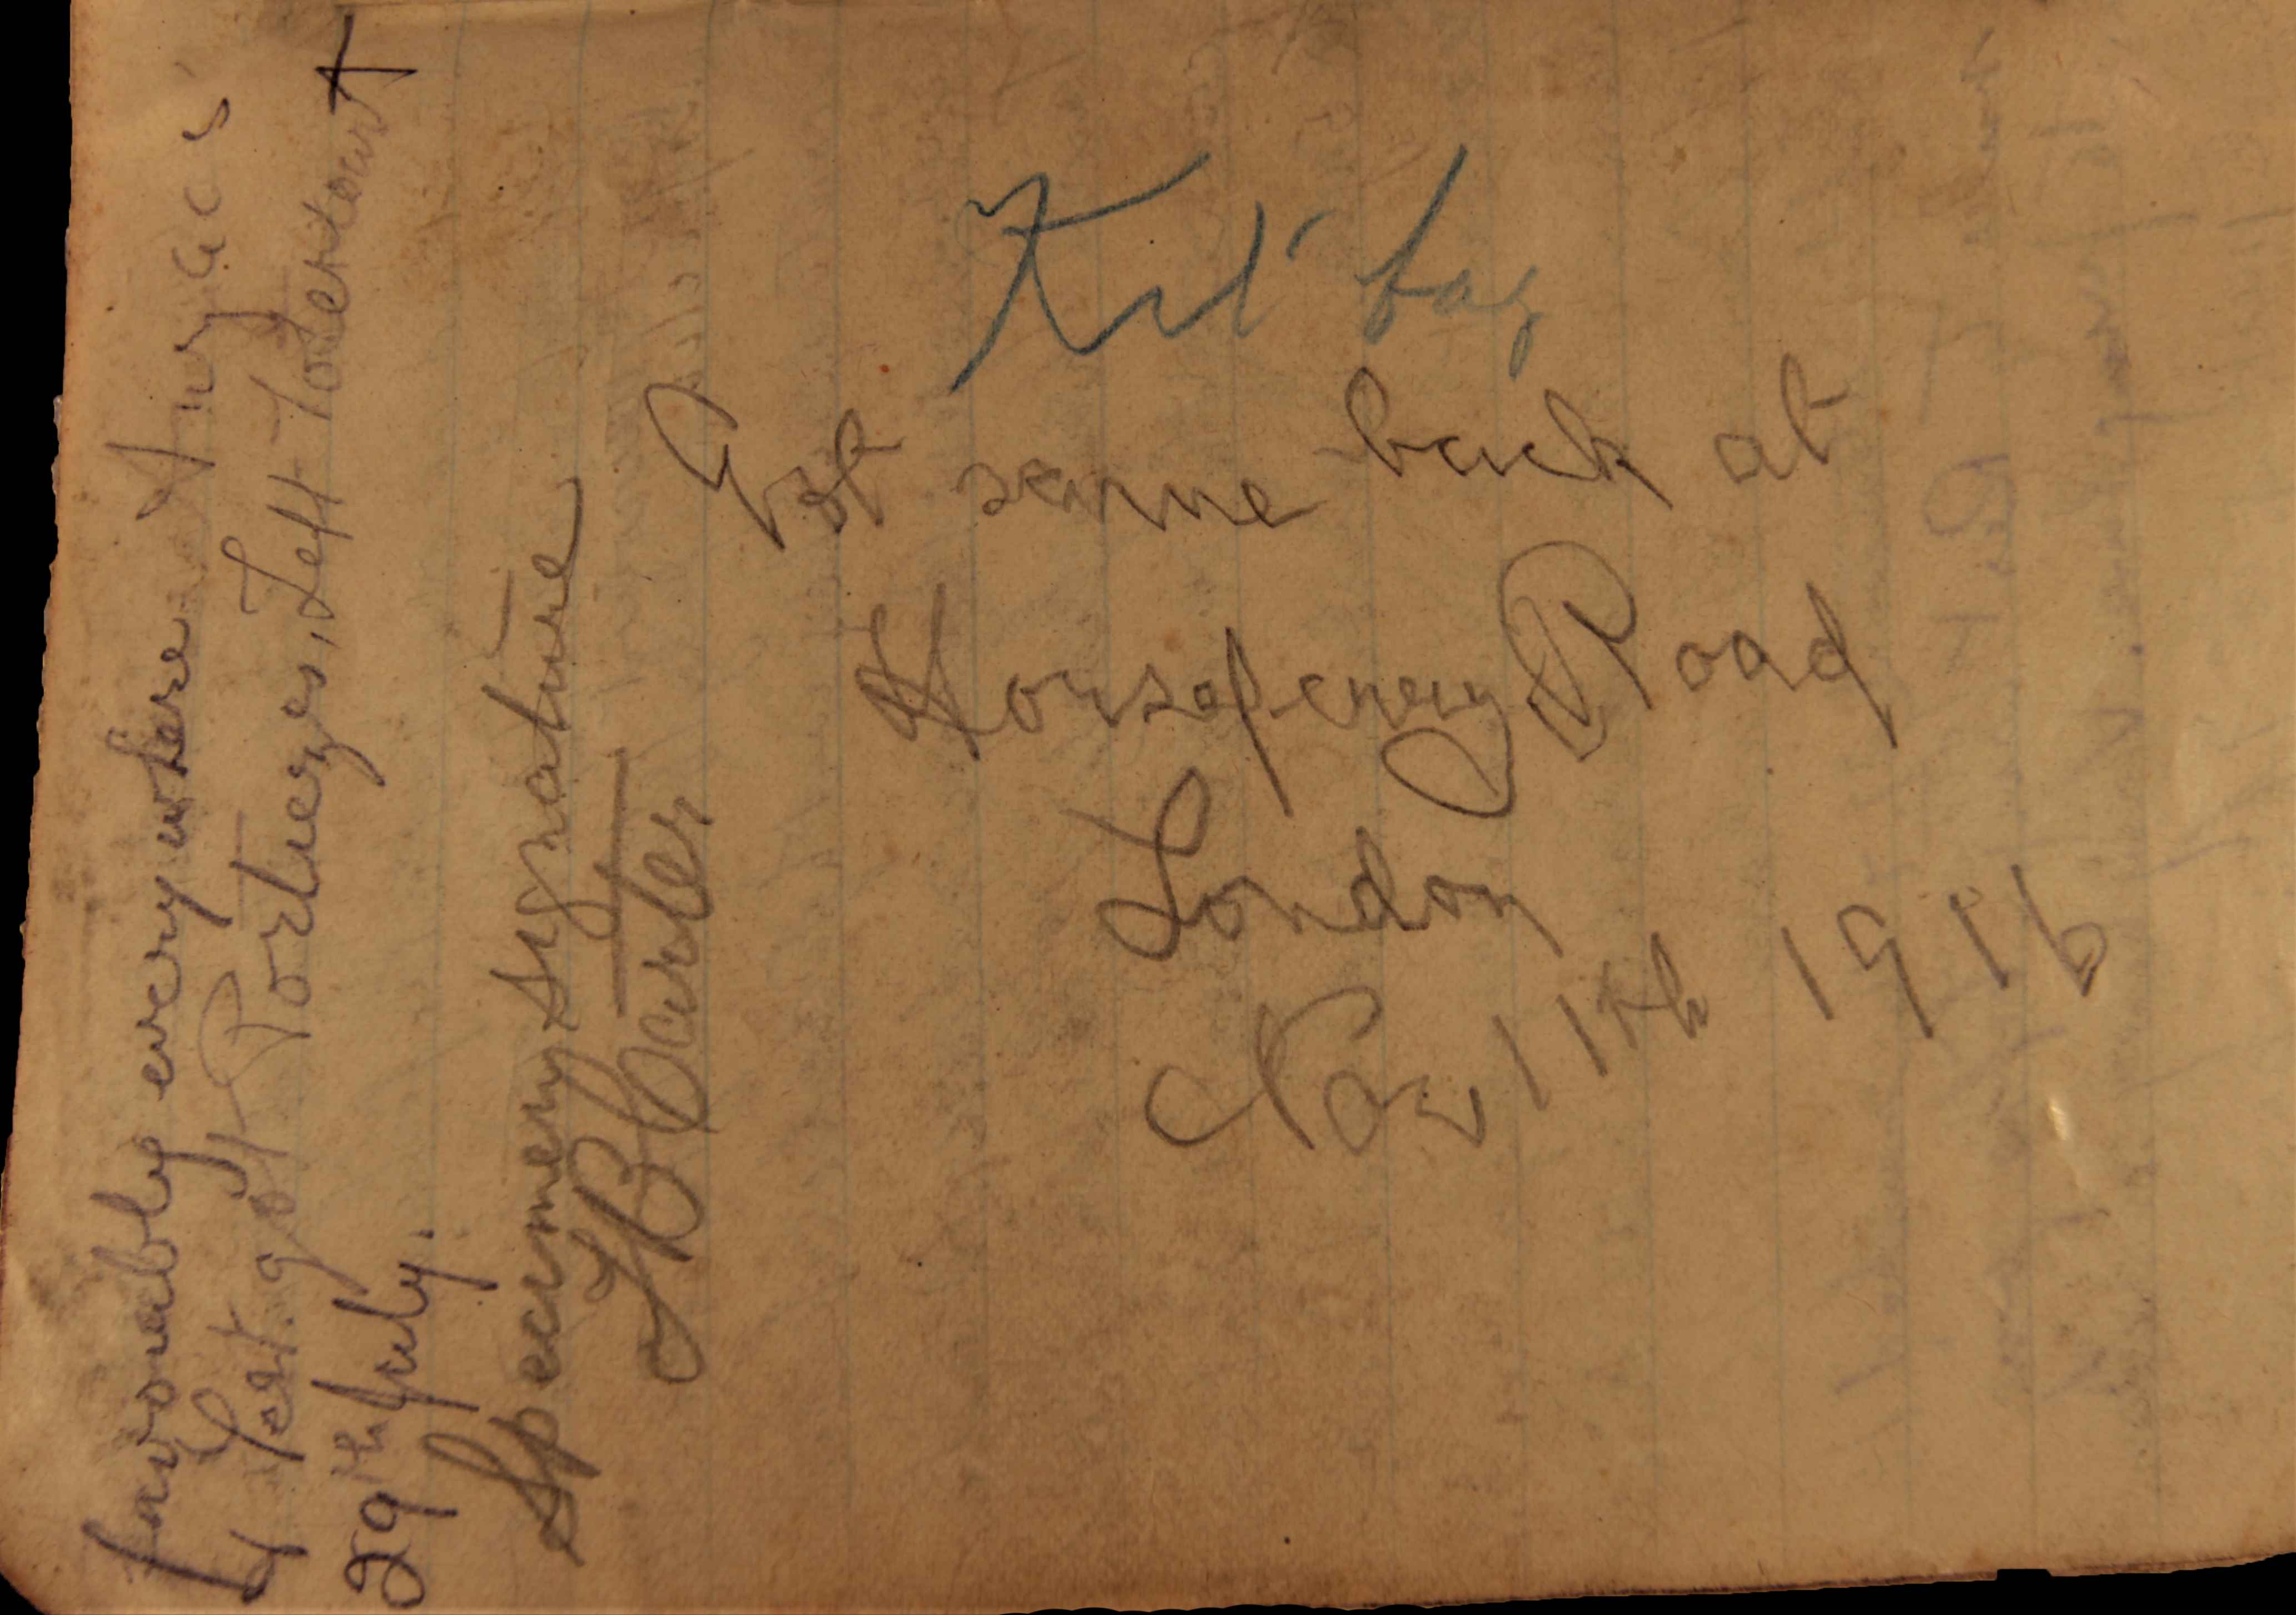 favorably every where Anzacs
& Yest. got Portueges, Left Tolentowt
29th July.
Specimen Signature
L B Carter
Kit bag
Got same back at
Horseferry Road
London
Nov 11th 1916